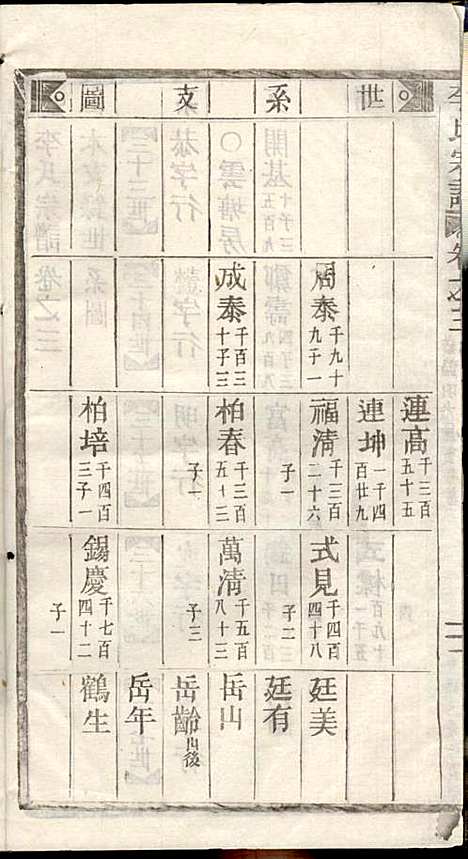 世系支圖
連高 千三百五十五
連坤 一千四百廿九
周泰 千九十九 子一
福清 千三百二十六 子一
式見 千四百四十八 子二
廷美
廷有
成泰 千百三十 子三
柏春 千三百五十三 子一
萬清 千五百八十三 子三
岳山
岳齡 出後
岳年
柏培 千四百三 子一
錫慶 千七百四十二 子一
鶴生